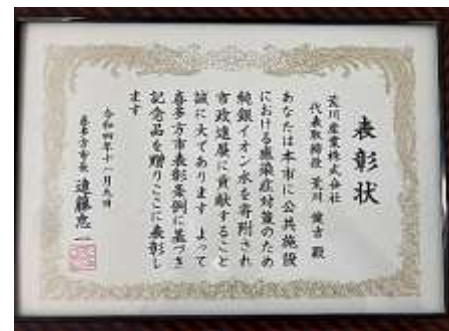 表彰状
荒川産業株式会社
代表取締役 荒川 健吉 殿
あなたは本市に公共施設
における感染症対策のため
純銀イオン水を寄附され
市政進展に貢献すること
誠に大であります よって
喜多方市表彰条例に基づき
記念品を贈りここに表彰し
ます
令和四年十一月九日
喜多方市長 遠藤忠一